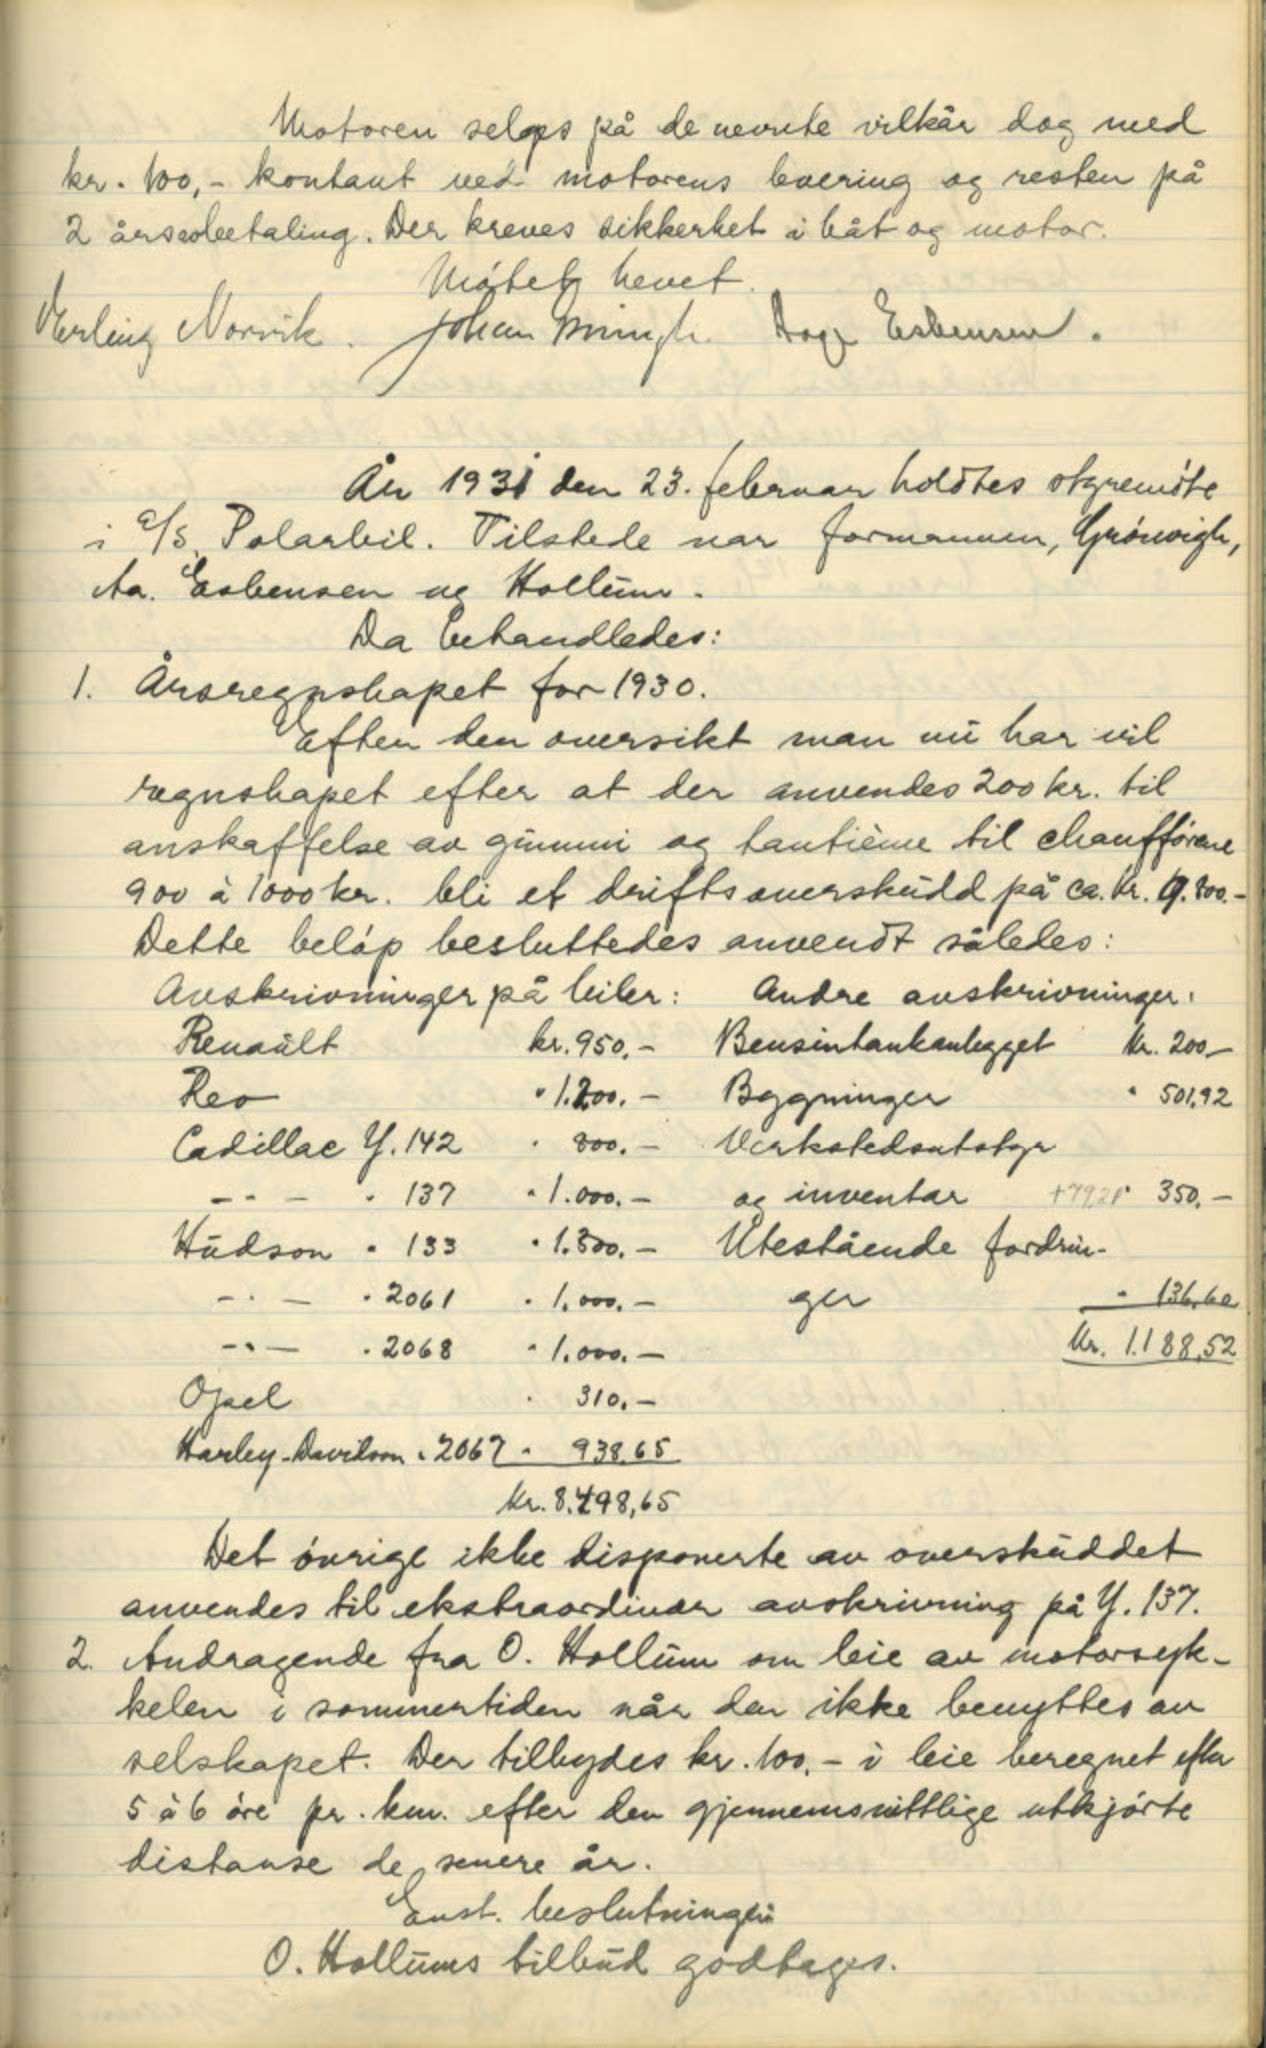 Motoren selges på de nevnte vilkår dog med
kr. 100,- kontant ved motorens levering og resten på
2 årsavbetaling. Der kreves sikkerhet i båt og motor.
Møtet hevet.
Erling Norvik. Johan Aage Esbensen.
År 1931 den 23. februar holdtes styremøte
i A/S. Polarbil. Tilstede var formannen, Grönvigh,
Aa. Esbensen og Hollum.
Da behandledes:
1. Årsregnskapet for 1930.
Efter den oversikt man nu har vil
regnskapet efter at der anvendes 200 kr. til
anskaffelse av gummi og tantième til chaufførene
900 à 1000 kr. bli et driftsoverskudd på ca. kr. 9.800.-
Dette beløp besluttedes anvendt således:
Avskrivninger på biler: Andre avskrivninger:
Renault kr. 950.- Bensintankanlegget kr. 200,-
Reo " 1.200.- Bygninger " 501,92
Cadillac Y. 142 " 800.- Verkstedsutstyr
-"- " 137 " 1.000.- og inventar +79,21 " 350.-
Hudson " 133 " 1.300.- Utestående fordrin-
-"- " 2061 " 1.000.- ger " 136,60
-"- " 2068 " 1.000.- Kr. 1.188,52
Opel " 310.-
Harley-Davidson " 2067 " 938,65
Kr. 8.498,65
Det øvrige ikke disponerte av overskuddet
anvendes til ekstraordinær avskrivning på Y. 137.
2. Andragende fra O. Hollum om leie av motorsyk-
kelen i sommertiden når den ikke benyttes av
selskapet. Der tilbydes kr. 100,- i leie beregnet efter
5 à 6 øre pr. km. efter den gjennemsnittlige utkjørte
distanse de senere år.
Enst. beslutning:
O. Hollums tilbud godtages.